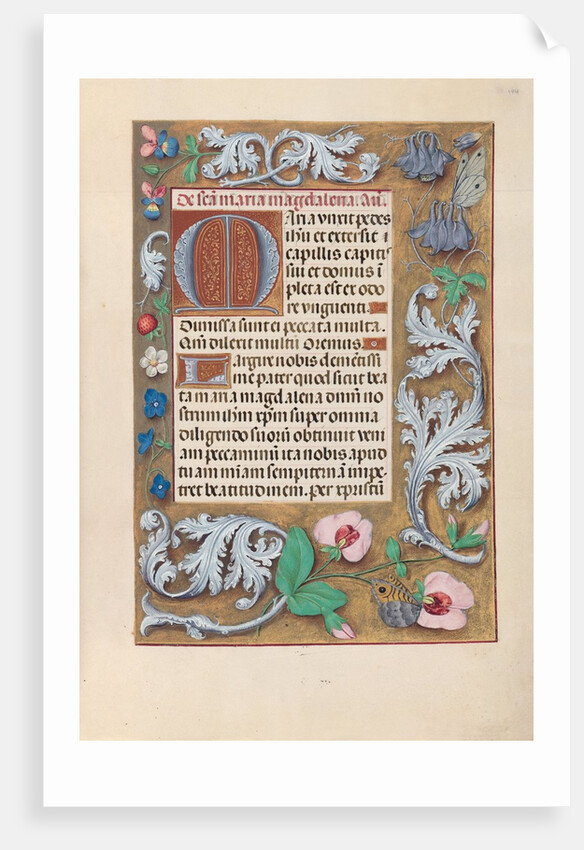 De scā maria magdalena. Añ.
Maria vnxit pedes
ihū et extersit
capillis capitis
sui et domus ī
pleta est ex odo
re vnguenti.
Dimissa sunt ei peccata multa.
Qm̄ dilexit multū Oremus.
Largire nobis clemētissi
me pater quod sicut bea
ta maria magdalena dn̄m no
strum ihm̄ xp̄m super omnia
diligendo suorū obtinuit veni
am peccaminū ita nobis apud
tuam mīam sempiternā impe
tret beatitudinem. Per xpristū